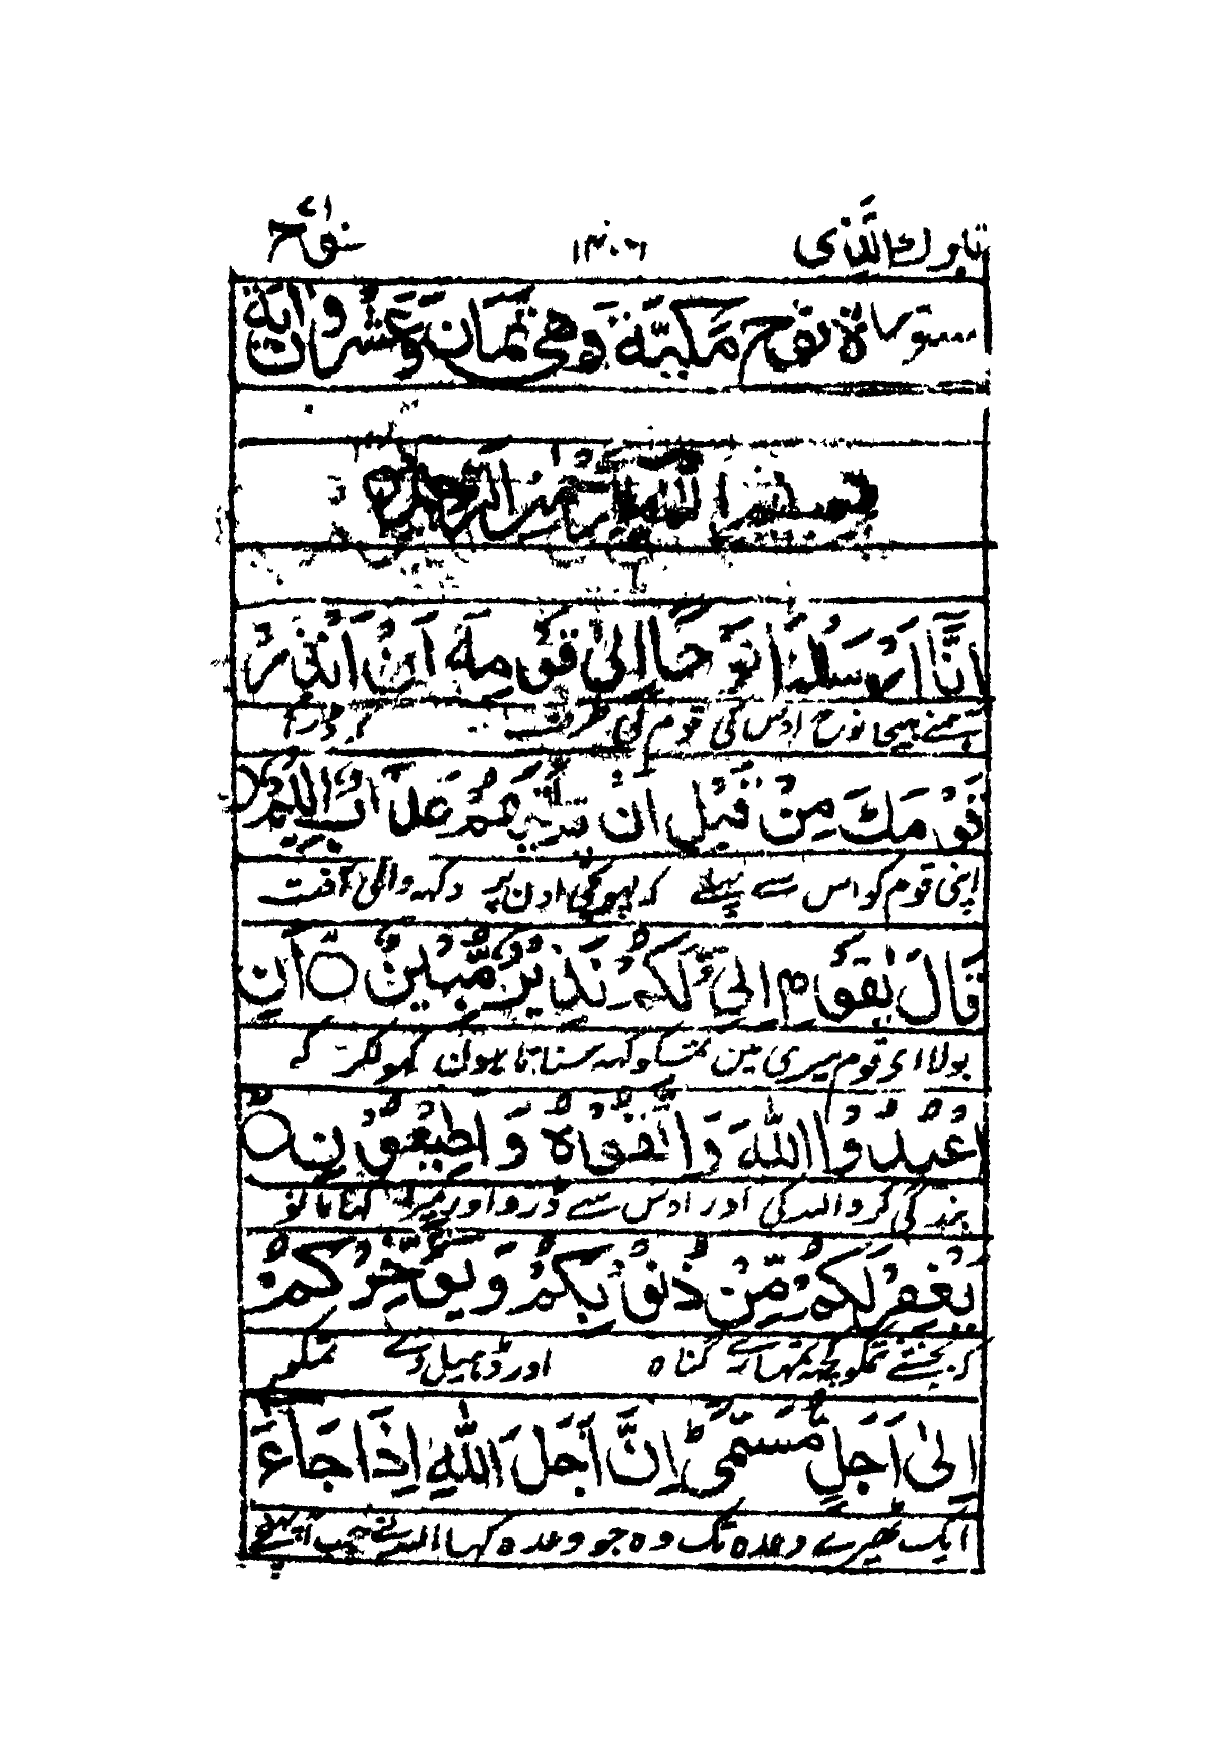 تبارك الذی ۱۴۰۶ نوح ۷۱
سورة نوح مكية وهي ثمان وعشرون اية
بسم الله الرحمن الرحيم
اِنَّا اَرْسَلْنَا نُوْحًا اِلٰى قَوْمِهٖ اَنْ اَنْذِرْ
ہمنے بہیجا نوح اوس کی قوم کی طرف کہ ڈرا
قَوْمَكَ مِنْ قَبْلِ اَنْ يَّاْتِيَهُمْ عَذَابٌ اَلِيْمٌ ○
اپنی قوم کو اس سے پہلے کہ پہونچی اون پر دکہہ والی آفت
قَالَ يٰقَوْمِ اِنِّىْ لَكُمْ نَذِيْرٌ مُّبِيْنٌ ○ اَنِ
بولا ای قوم میری مین تمکو کہہ سناتا ہون کہولکر کہ
اعْبُدُوا اللّٰهَ وَاتَّقُوْهُ وَاَطِيْعُوْنِ ○
بندگی کرو اللہ کی اور اوس سے ڈرو اور میرا کہا مانو
يَغْفِرْ لَكُمْ مِّنْ ذُنُوْبِكُمْ وَيُؤَخِّرْكُمْ
کہ بخشے تمکو کچہہ تمہارے گناہ اور ڈہیل دے تمکو
اِلٰى اَجَلٍ مُّسَمًّى ط اِنَّ اَجَلَ اللّٰهِ اِذَا جَآءَ
ایک ٹہیرے وعدہ تک وہ جو وعدہ کہا اللہ نے جب آ پہنچے